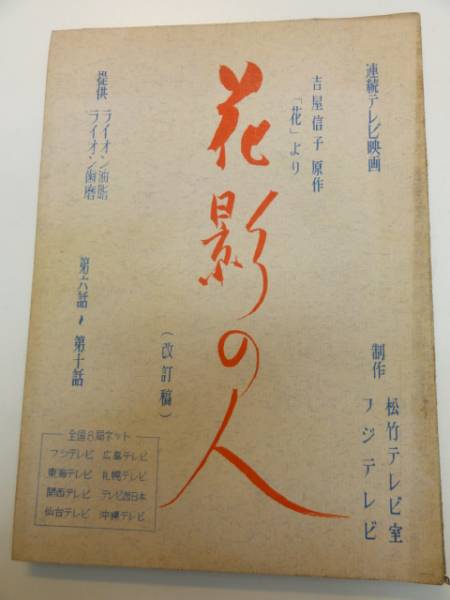 連続テレビ映画
吉屋信子 原作
「花」より
花影の人
(改訂稿)
制作 松竹テレビ室
フジテレビ
提供 ライオン油脂
ライオン歯磨
第六話〜第十話
全国8局ネット
フジテレビ 広島テレビ
東海テレビ 札幌テレビ
関西テレビ テレビ西日本
仙台テレビ 沖縄テレビ